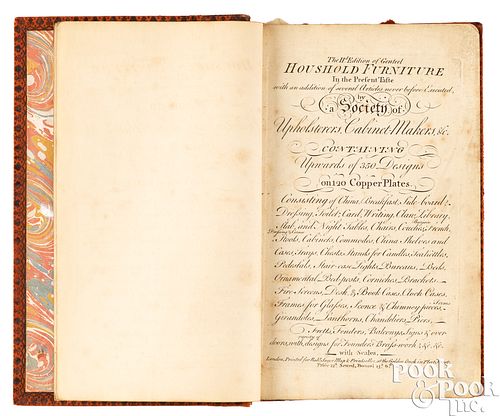 The IId. Edition of Genteel
HOUSHOLD FURNITURE
In the Present Taste
with an addition of several Articles never before Executed,
by
a Society of
Upholsterers, Cabinet-Makers, &c.
CONTAINING
Upwards of 350 Designs
on 120 Copper Plates.
Consisting of China, Breakfast, Side-board,
Dressing, Toilet, Card, Writing, Claw, Library,
Slab, and Night Tables, Chairs, Couches, French
Stools, Cabinets, Commodes, China Shelves and
Cases, Trays, Chests, Stands for Candles, Tea Kettles,
Pedestals, Stair-case Lights, Bureaus, Beds,
Ornamental Bed-posts, Corniches, Brackets
Fire-Screens, Desk & Book-Cases, Clock-Cases,
Frames for Glasses, Sconce & Chimney-pieces,
Girandoles, Lanthorns, Chandeliers,
Fretts, Fenders, Balconys, Signs & over
doors, with designs for Founders Brass-work &c. &c.
with Scales.
London, Printed for Robt. Sayer Map & Printseller, at the Golden Buck in Fleet Street.
Price Sewed, Bound
POOK & POOK Inc.